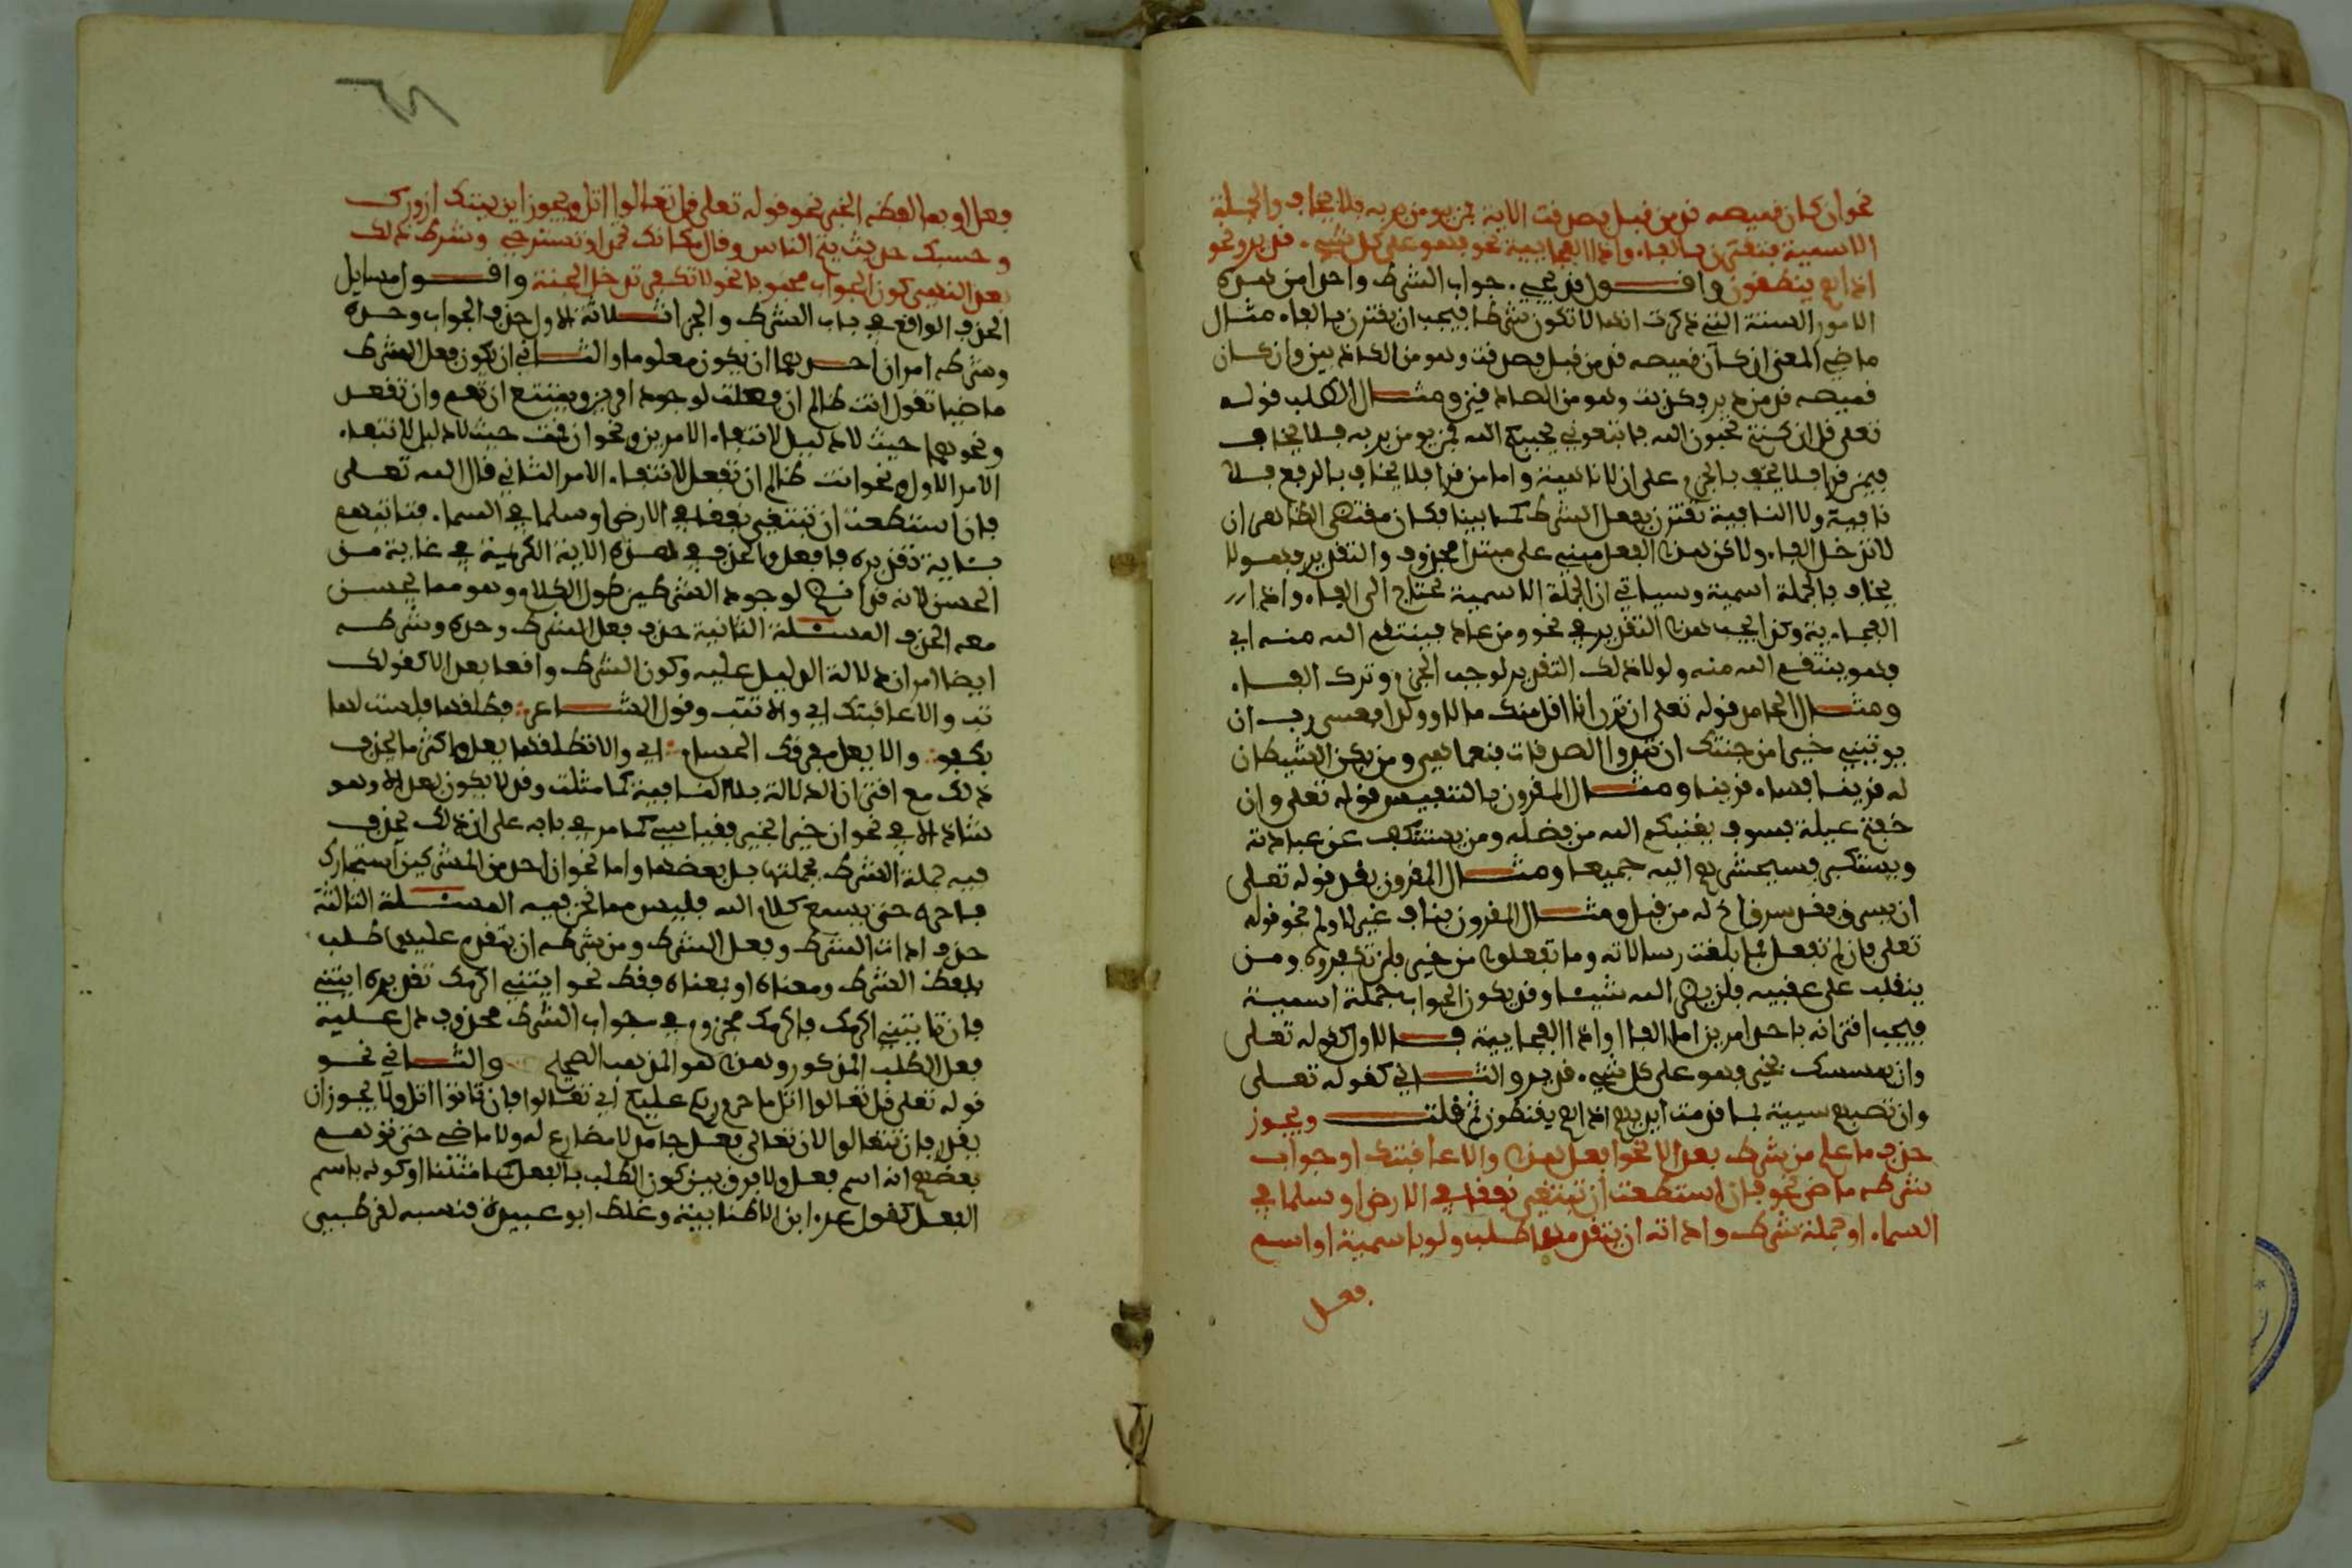 نحو ان كان قميصه قد من قبل فصدقت الاية فمن يومن بربه فلا يخاف والجملة
الاسمية فتقترن بالفاء واذا الفجايية نحو فهو على كل شيء قدير ونحو
اذا هم يقنطون واقــول قد يجيء جواب الشرط واحدا من هذه
الامور الستة التي ذكرت انها لا تكون شرطا فيجب ان يقترن بالفاء مثال
ماضي المعنى ان كان قميصه قد من قبل فصدقت وهو من الكاذبين وان كان
قميصه قد من دبر فكذبت وهو من الصادقين ومثــال الطلب قوله
تعلى قل ان كنتم تحبون الله فاتبعوني يحببكم الله فمن يومن بربه فلا يخاف
فيمن قرا فلا يخف بالجزم على ان لا ناهية واما من قرا فلا يخاف بالرفع فلا
نافية ولا النافية تقترن بفعل الشرط كما بينا فكان مقتضى الظاهر ان
لا تدخل الفاء ولاكن هذا الفعل مبني على مبتدا محذوف والتقدير فهو لا
يخاف فالجملة اسمية وسياتي ان الجملة الاسمية تحتاج الى الفاء واذا
الفجاءية وكذا يجب هذا التقدير في نحو ومن عاد فينتقم الله منه اي
فهو ينتقم الله منه ولولا ذلك التقدير لوجب الجزم وترك الفــاء
ومثــال الجامد قوله تعلى ان ترن انا اقل منك مالا وولدا فعسى رب ان
يوتيني خيرا من جنتك ان تبدوا الصدقات فنعما هي ومن يكن الشيطان
له قرينا فساء قرينا ومثــال المقرون بالتنفيس قوله تعلى وان
خفتم عيلة فسوف يغنيكم الله من فضله ومن يستنكف عن عبادته
ويستكبر فسيحشرهم اليه جميعا ومثــال المقرون بقد قوله تعلى
ان يسرق فقد سرق اخ له من قبل ومثــال المقرون بناف غير لا ولم نحو قوله
تعلى فان لم تفعل فما بلغت رسالاته وما تفعلوا من خير فلن تكفروه ومن
ينقلب على عقبيه فلن يضر الله شيئا وقد يكون الجواب جملة اسمية
فيجب اقترانه باحد امرين اما الفاء او اذا الفجايية فــالاول كقوله تعلى
وان يمسسك بخير فهو على كل شيء قدير والثــاني كقوله تعلى
وان تصبهم سيية بما قدمت ايديهم اذا هم يقنطون ثم قلتــ ويجوز
حذف ما علم من شرط بعد الا نحو افعل هذا والا عاقبتك او جواب
شرطه ماض نحو فان استطعت ان تبتغي نفقا في الارض او سلما في
السماء او جملة شرط واداته ان تقدمها طلب ولو باسمية او اسم
فعــل
فعل او بما لفظه الخبر نحو قوله تعلى قل تعالوا اتل ونحو اين بيتك ازورك
وحسبك حديث ينم الناس وقال مكانك تحمدي او تستريحي وشرط ذلك
بعد النهي كون الجواب محبوبا نحو لا تكفر تدخل الجنة واقــول مسايل
الحذف الواقع في باب الشرط والجزا ثــلاثة الاول حذف الجواب وحده
وشرطه امران احــدهما ان يكون معلوما والثــاني ان يكون فعل الشرط
ماضيا تقول انت ظالم ان فعلت لوجود الامرين ويمتنع ان تقم وان تفعل
ونحوهما حيث لا دليل لانتفاء الامرين ونحو ان قمت حيث لا دليل لانتفاء
الامر الاول ونحو انت ظالم ان تفعل لانتفاء الامر الثاني قال الله تعلى
فان استطعت ان تبتغي نفقا في الارض او سلما في السماء فتاتيهم
بــاية تقديره فافعل والحذف في هذه الاية الكريمة في غاية من
الحسن لانه قد انضم لوجود الشرطين طول الكلام وهو مما يحسن
معه الحذف المسئــلة الثانية حذف فعل الشرط وحده وشرطه
ايضا امران دلالة الدليل عليه وكون الشرط واقعا بعد الا كقولك
تب والا عاقبتك اي والا تتب وقول الشــاعر فطلقها فلست لها
بكفو والا يعل مفرقك الحسام اي والا تطلقها يعل واكثر ما يحذف
ذلك مع اقتران الاداة بلا النافية كما مثلت وقد لا يكون بعد الا وهو
شاذ الا في نحو ان خيرا فخير فقياسي كما مر في بابه على ان ذلك يحذف
فيه جملة الشرط بجملتها بل بعضها واما نحو وان احد من المشركين استجارك
فاجره حتى يسمع كلام الله فليس مما نحن فيه المسئــلة الثالثة
حذف اداة الشرط وفعل الشرط ومن شرطه ان يتقدم عليهما طلب
بلفظ الشرط ومعناه او بمعناه فقط نحو ايتني اكرمك تقديره ايتني
فان تاتني اكرمك فاكرمك مجزوم في جواب الشرط محذوف دل عليه
فعل الطلب المذكور وهذا هو المذهب الصحيح والثــاني نحو
قوله تعلى قل تعالوا اتل ما حرم ربكم عليكم اي تعالوا فان تاتوا اتل ولا يجوز ان
يقدر فان تتعالوا لان تعالى فعل جامد لا مضارع له ولا ماضي حتى توهم
بعضهم انه اسم فعل ولا فرق بين كون الطلب بالفعل كما مثلنا او كونه باسم
الفعل كقول عمرو ابن الاطنابية وغلط ابو عبيدة فنسبه لقطري